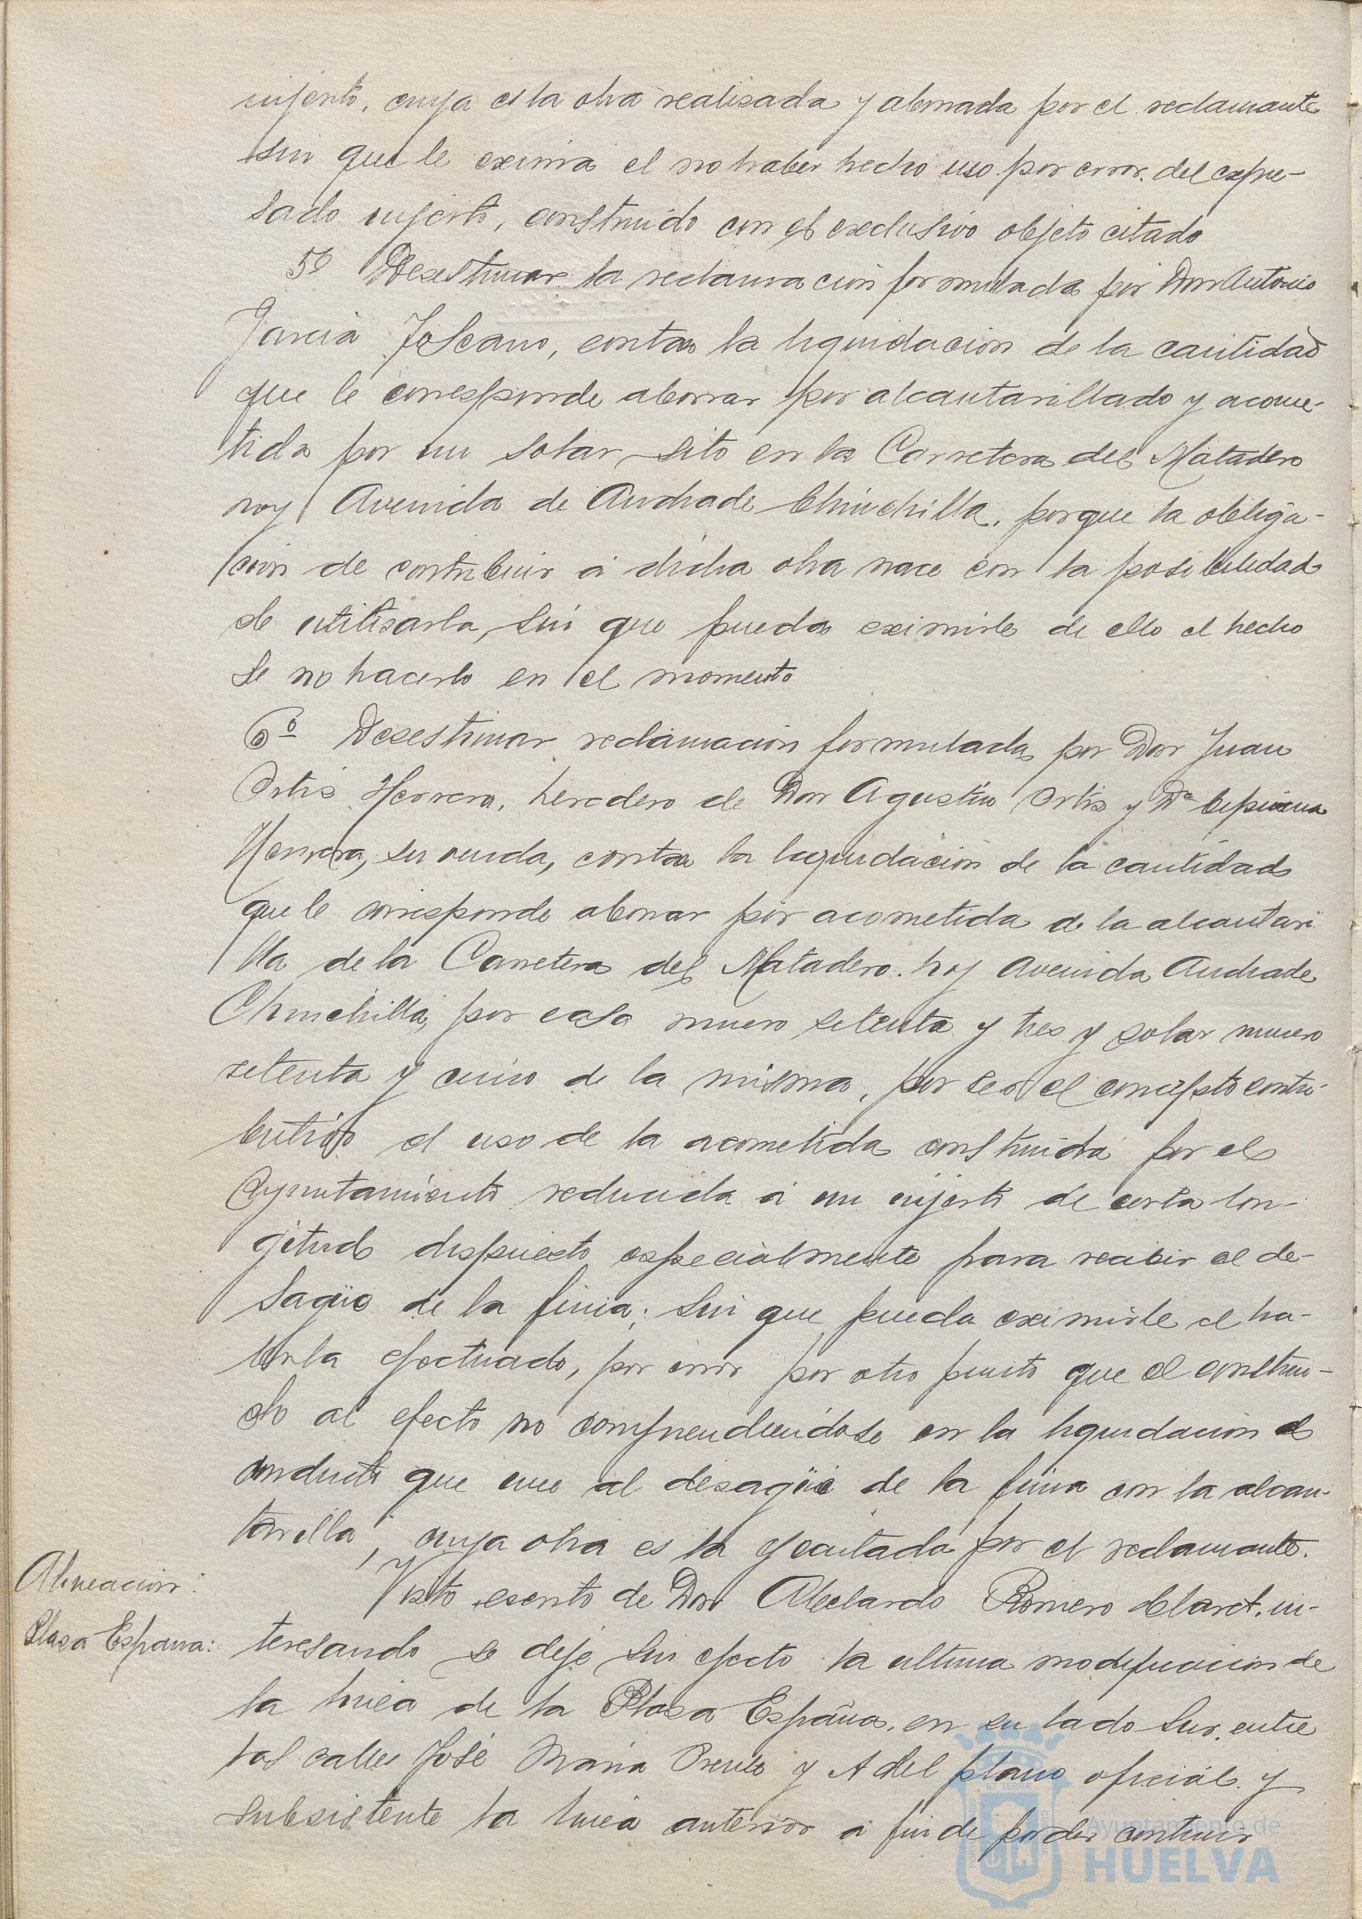 injerto, cuya es la obra realizada y abonada por el reclamante
sin que le exima el no haber hecho uso por error del expre-
sado injerto, construido con el exclusivo objeto citado
5º Desestimar la reclamación formulada por Don Antonio
García Toscano, contra la liquidacion de la cantidad
que le corresponde abonar por alcantarillado y acome-
tida por un solar sito en la Carretera del Matadero
hoy Avenida de Andrade Chinchilla, porque la obliga-
ción de contribuir a dicha obra nace con la posibilidad
de utilizarla, sin que pueda eximirle de ello el hecho
de no hacerlo en el momento
6º Desestimar reclamación formulada por Don Juan
Ortiz Herrero, heredero de Don Agustin Ortiz y Dª
Herrera, su viuda, contra la liquidación de la cantidad
que le corresponde abonar por acometida de la alcantari
lla de la Carretera del Matadero, hoy Avenida Andrade
Chinchilla, por casa numero setenta y tres y solar numero
setenta y cinco de la misma, por ser el concepto contri
butivo el uso de la acometida construida por el
Ayuntamiento reducida a un injerto de corta lon-
gitud dispuesto especialmente para recibir el de-
sagüe de la finca; sin que pueda eximirle el ha-
berla efectuado, por error por otro punto que el construi-
do al efecto no comprendiendose en la liquidacion el
conducto que une al desagüe de la finca con la alcan-
tarilla, cuya obra es la ejecutada por el reclamante.
Alineacion:
Plaza España:
Visto escrito de Don Abelardo Romero Claret, in-
teresando se deje sin efecto la ultima modificacion de
la linea de la Plaza España, en su lado Sur, entre
las calles José Maria y A del plano oficial y
subsistente la linea anterior a fin de poder contruir
Ayuntamiento de
HUELVA